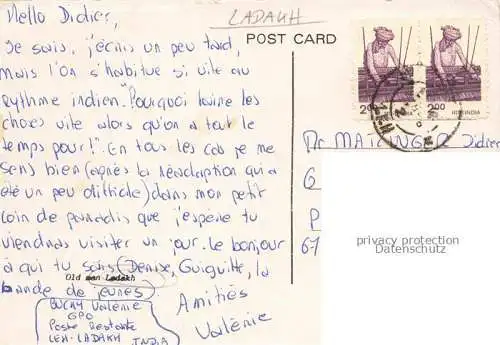 Hello Didier,
LADAKH
POST CARD
Je sais, j'écris un peu tard,
mais l'on s'habitue si vite au
rythme indien. "Pourquoi faire les
choses vite alors qu'on a tout le
temps pour!". En tous les cas je me
sens bien (après la réadaptation qui a
été un peu difficile) dans mon petit
coin de paradis que j'espère tu
viendras visiter un jour. Le bonjour
à qui tu sais (Denise, Guiguitte, la
bande de jeunes)
Old man Ladakh
Amitiés
Valérie
Valérie
GPO
Poste Restante
LEH-LADAKH INDIA
2.00
2.00
INDIA
Didier
6
P
67
privacy protection
Datenschutz